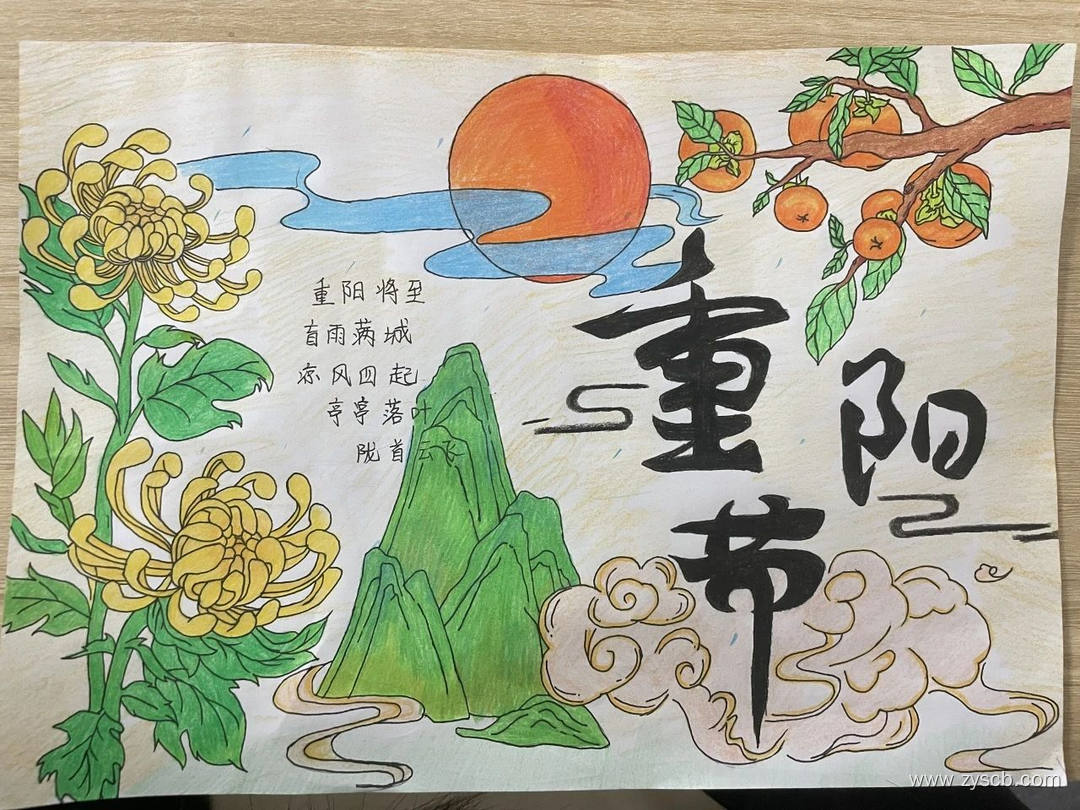 重阳将至
盲雨满城
凉风四起
亭亭落叶
陇首云飞
重阳
节
www.zyscb.com